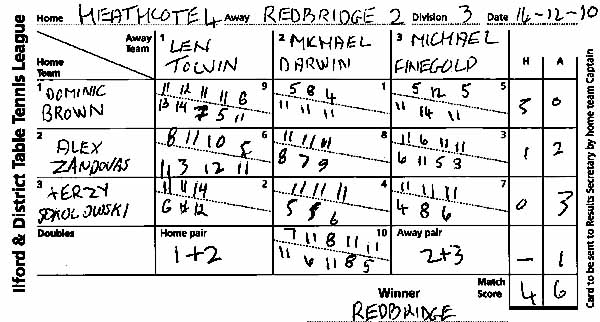 Home HEATHCOTE 4 Away REDBRIDGE 2 Division 3 Date 14-12-10
Ilford & District Table Tennis League
Away Team
Home Team
1 LEN TOLVIN
2 MICHAEL DARWIN
3 MICHAEL FINEGOLD
H A
1 DOMINIC BROWN
9
11 12 11 11 6
13 14 7 5 11
1
5 8 4
11 11 11
5
5 12 5
11 14 11
3 0
2 ALEX ZANDOVAS
6
8 11 10 5
11 3 12 11
8
11 11 11
8 7 9
3
11 6 11 11
6 11 5 3
1 2
3 JERZY SOKOLOWSKI
2
11 11 14
6 12
4
11 11 11 11
5 6
7
11 11 11
4 8 6
0 3
Doubles
Home pair
1+2
10
7 11 8 11 11
11 6 11 8 5
Away pair
2+3
- 1
Winner
REDBRIDGE
Match Score
4 6
Card to be sent to Results Secretary by home team Captain